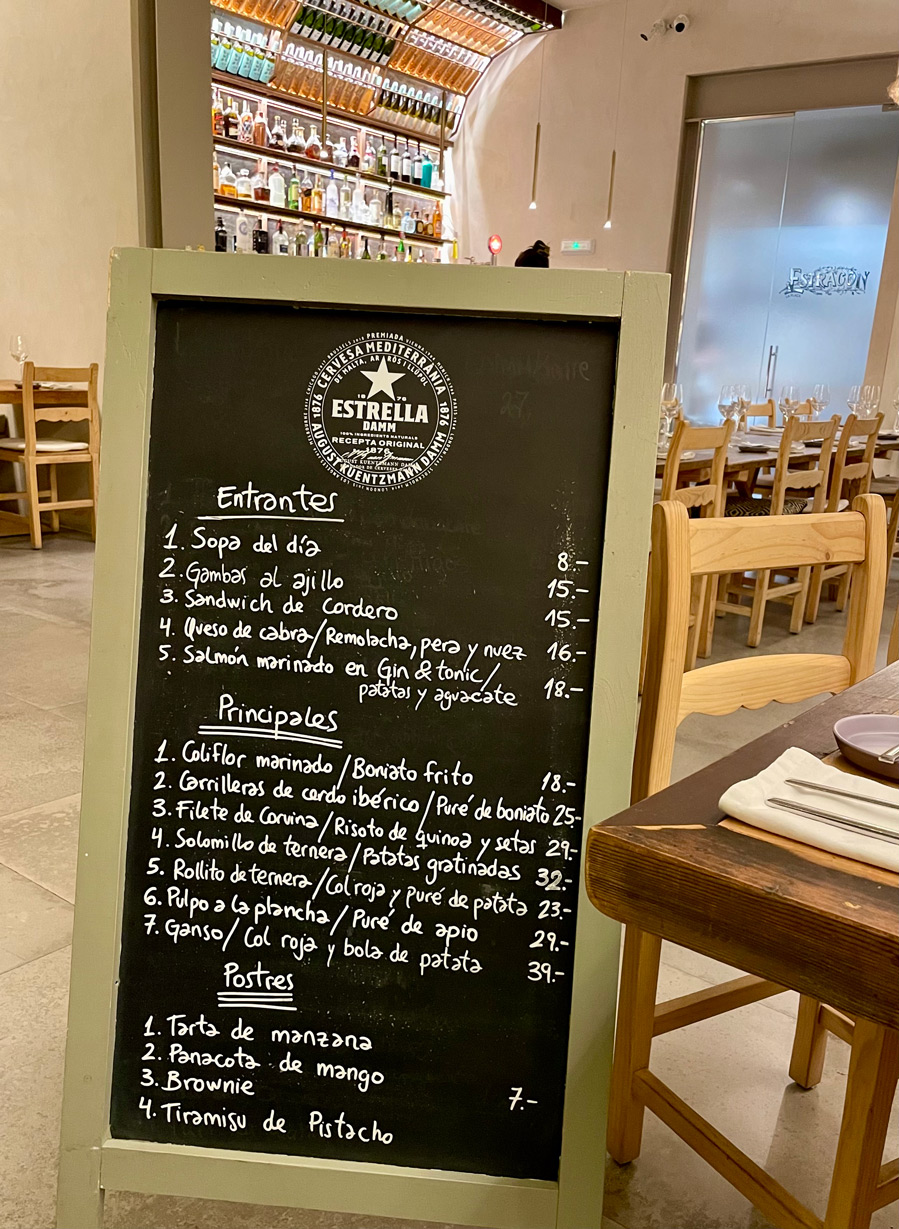 ESTRAGÓN
PREMIADA
CERVESA MEDITERRÀNIA
DE MALTA, ARRÒS I LLÚPOL
1876
1876
1876
ESTRELLA
DAMM
100% INGREDIENTS NATURALS
RECEPTA ORIGINAL
1876
AUGUST KUENTZMANN DAMM
AUGUST KUENTZMANN DAMM
Entrantes
1. Sopa del día 8.-
2. Gambas al ajillo 15.-
3. Sandwich de Cordero 15.-
4. Queso de cabra/Remolacha, pera y nuez 16.-
5. Salmón marinado en Gin & tonic/
patatas y aguacate 18.-
Principales
1. Coliflor marinado/Boniato frito 18.-
2. Carrilleras de cerdo ibérico/Puré de boniato 25-
3. Filete de Corvina/Risoto de quinoa y setas 29.-
4. Solomillo de ternera/Patatas gratinadas 32.-
5. Rollito de ternera/Col roja y puré de patata 23.-
6. Pulpo a la plancha/Puré de apio 29.-
7. Ganso/Col roja y bola de patata 39.-
Postres
1. Tarta de manzana
2. Panacota de mango
3. Brownie 7.-
4. Tiramisu de Pistacho